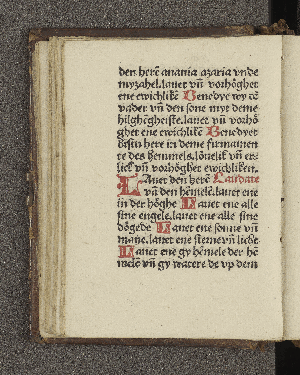 den herē anania azaria vnde
myzahel. lauet vn̄ vorhöghet
ene ewichlikē Benedye wy dē
vader vn̄ den sone myt deme
hilghēgheiste. lauet vn̄ vorhö
ghet ene ewichlikē Benedyet
bistu here in deme firmamen
te des hemmels. lōuelik vn̄ er
lick vn̄ vorhöghet ewichliken.
LAuet den herē Laudate
vn̄ den hēmelē. lauet ene
in der höghe Lauet ene alle
sine engele. lauet ene alle sine
dōgede Lauet ene sonne vn̄
mane. lauet ene sterne vn̄ licht
Lauet ene gy hēmele der hē
mele vn̄ gy watere de vp dem